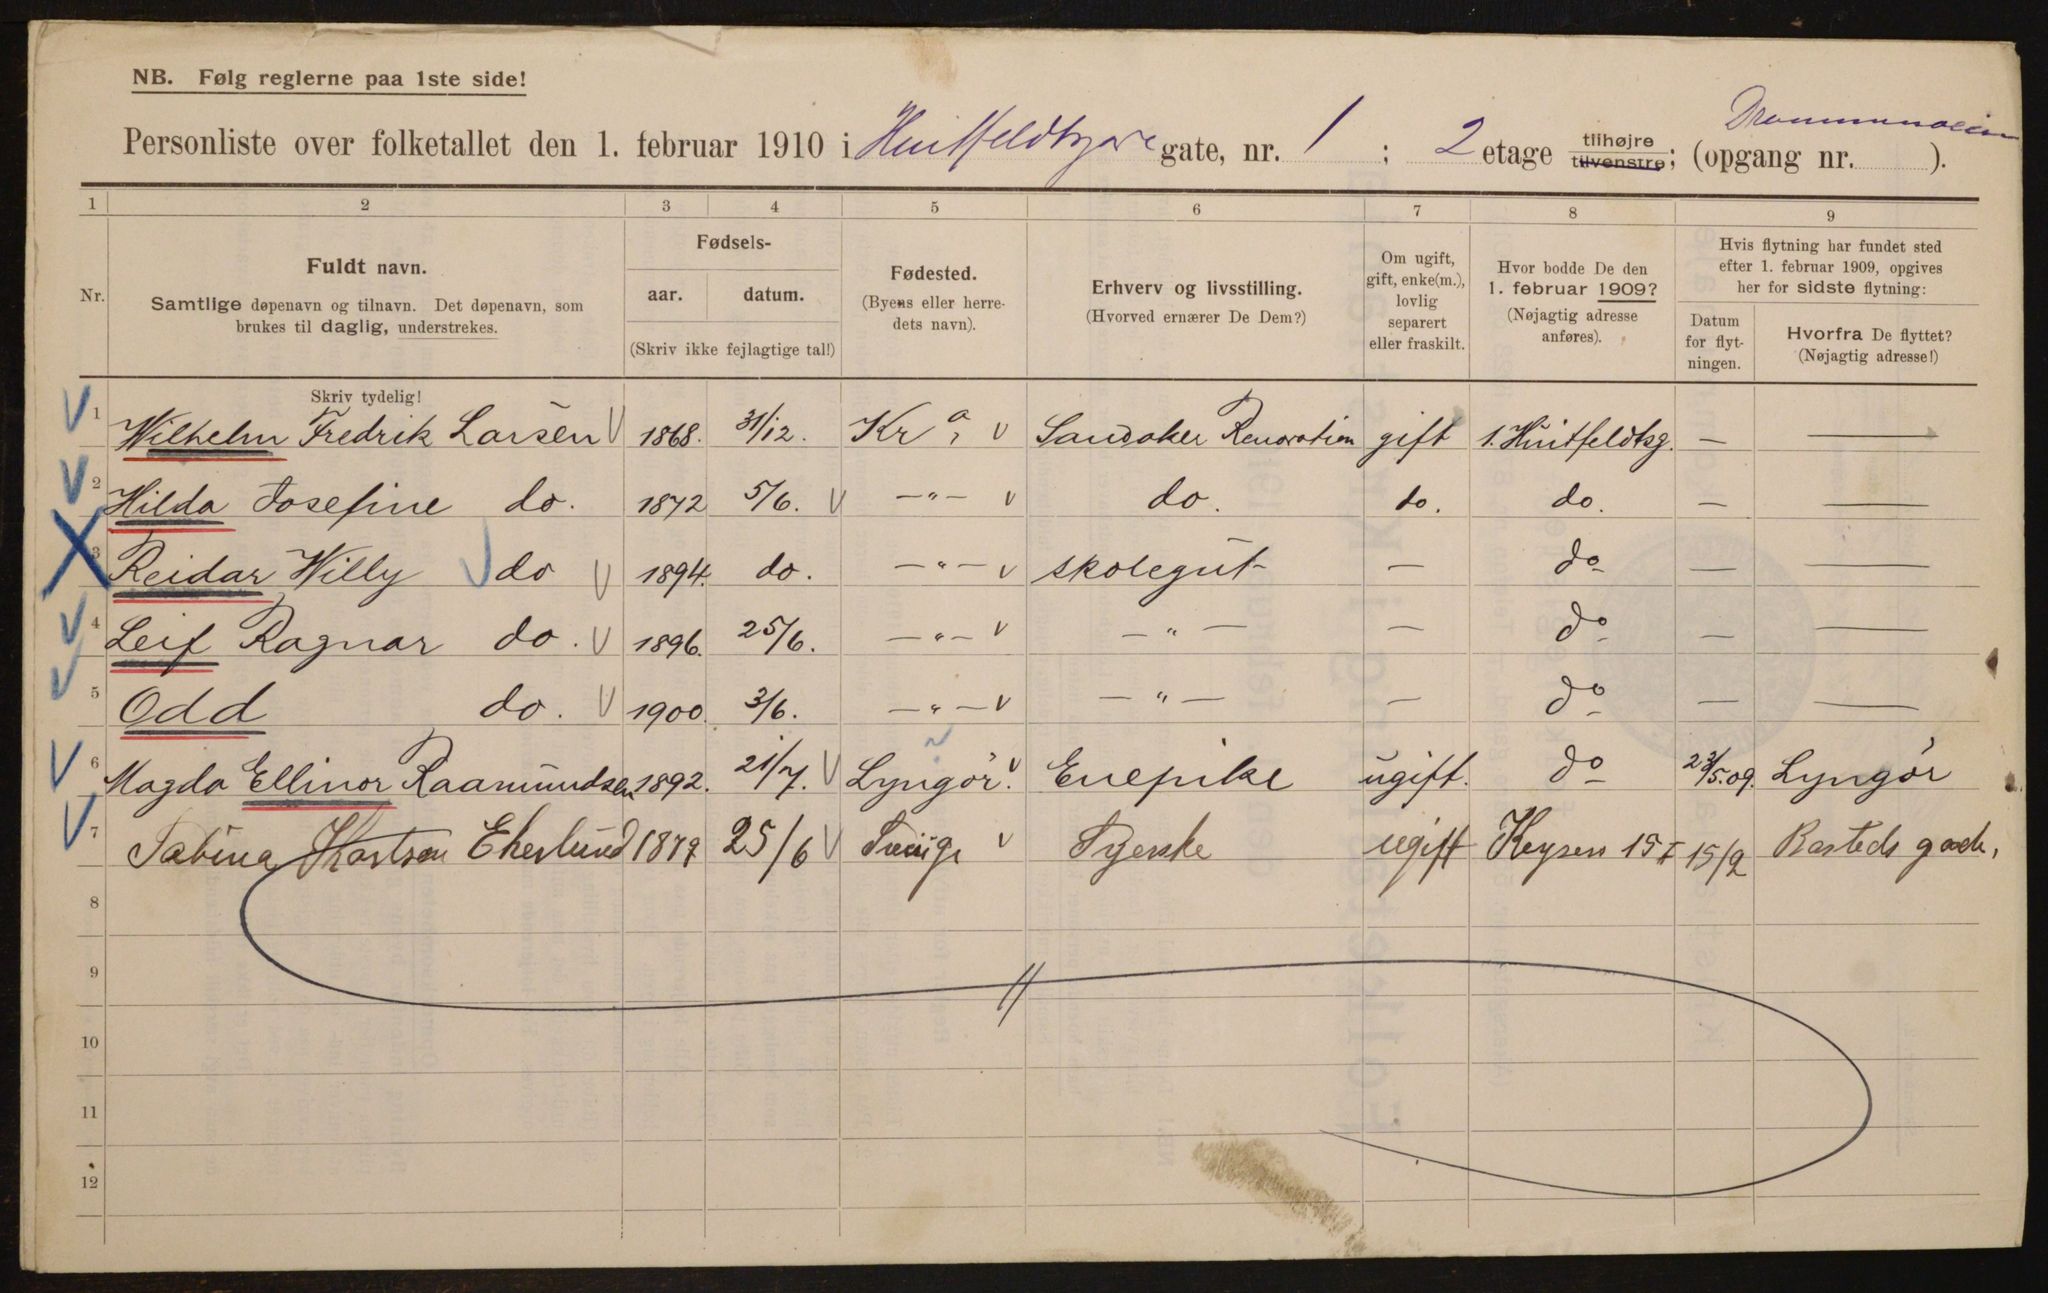 NB. Følg reglerne paa 1ste side!
Personliste over folketallet den 1. februar 1910 i Huitfeldtsgate gate, nr. 1 ; 2 etage tilhøjre tilvenstre; (opgang nr. ).
1 2 3 4 5 6 7 8 9
Nr.
Fuldt navn.
Samtlige døpenavn og tilnavn. Det døpenavn, som
brukes til daglig, understrekes.
Fødsels-
aar. datum.
(Skriv ikke fejlagtige tal!)
Fødested.
(Byens eller herre-
dets navn).
Erhverv og livsstilling.
(Hvorved ernærer De Dem?)
Om ugift,
gift, enke(m.),
lovlig
separert
eller fraskilt.
Hvor bodde De den
1. februar 1909?
(Nøjagtig adresse
anføres).
Hvis flytning har fundet sted
efter 1. februar 1909, opgives
her for sidste flytning:
Datum
for flyt-
ningen.
Hvorfra De flyttet?
(Nøjagtig adresse!)
Skriv tydelig!
1 Wilhelm Fredrik Larsen 1868. 31/12. Kr a, Sandaker Renovation gift 1. Huitfeldtsg. — —
2 Hilda Josefine do. 1872 5/6. —"— do. do. do. — —
3 Reidar Willy do 1894. do. —"— skolegut — do — —
4 Leif Ragnar do. 1896. 25/6. —"— —"— — do — —
5 Odd do. 1900. 3/6. —"— —"— — do — —
6 Magda Ellinor Raamundsen 1892. 21/7. Lyngör. Enepike ugift. do 23/5.09. Lyngör
7 Sabina Ekerlund 1879 25/6 Tyerske ugift Keysers 15 I 15/2 Rosteds gade,
8
9
10
11
12